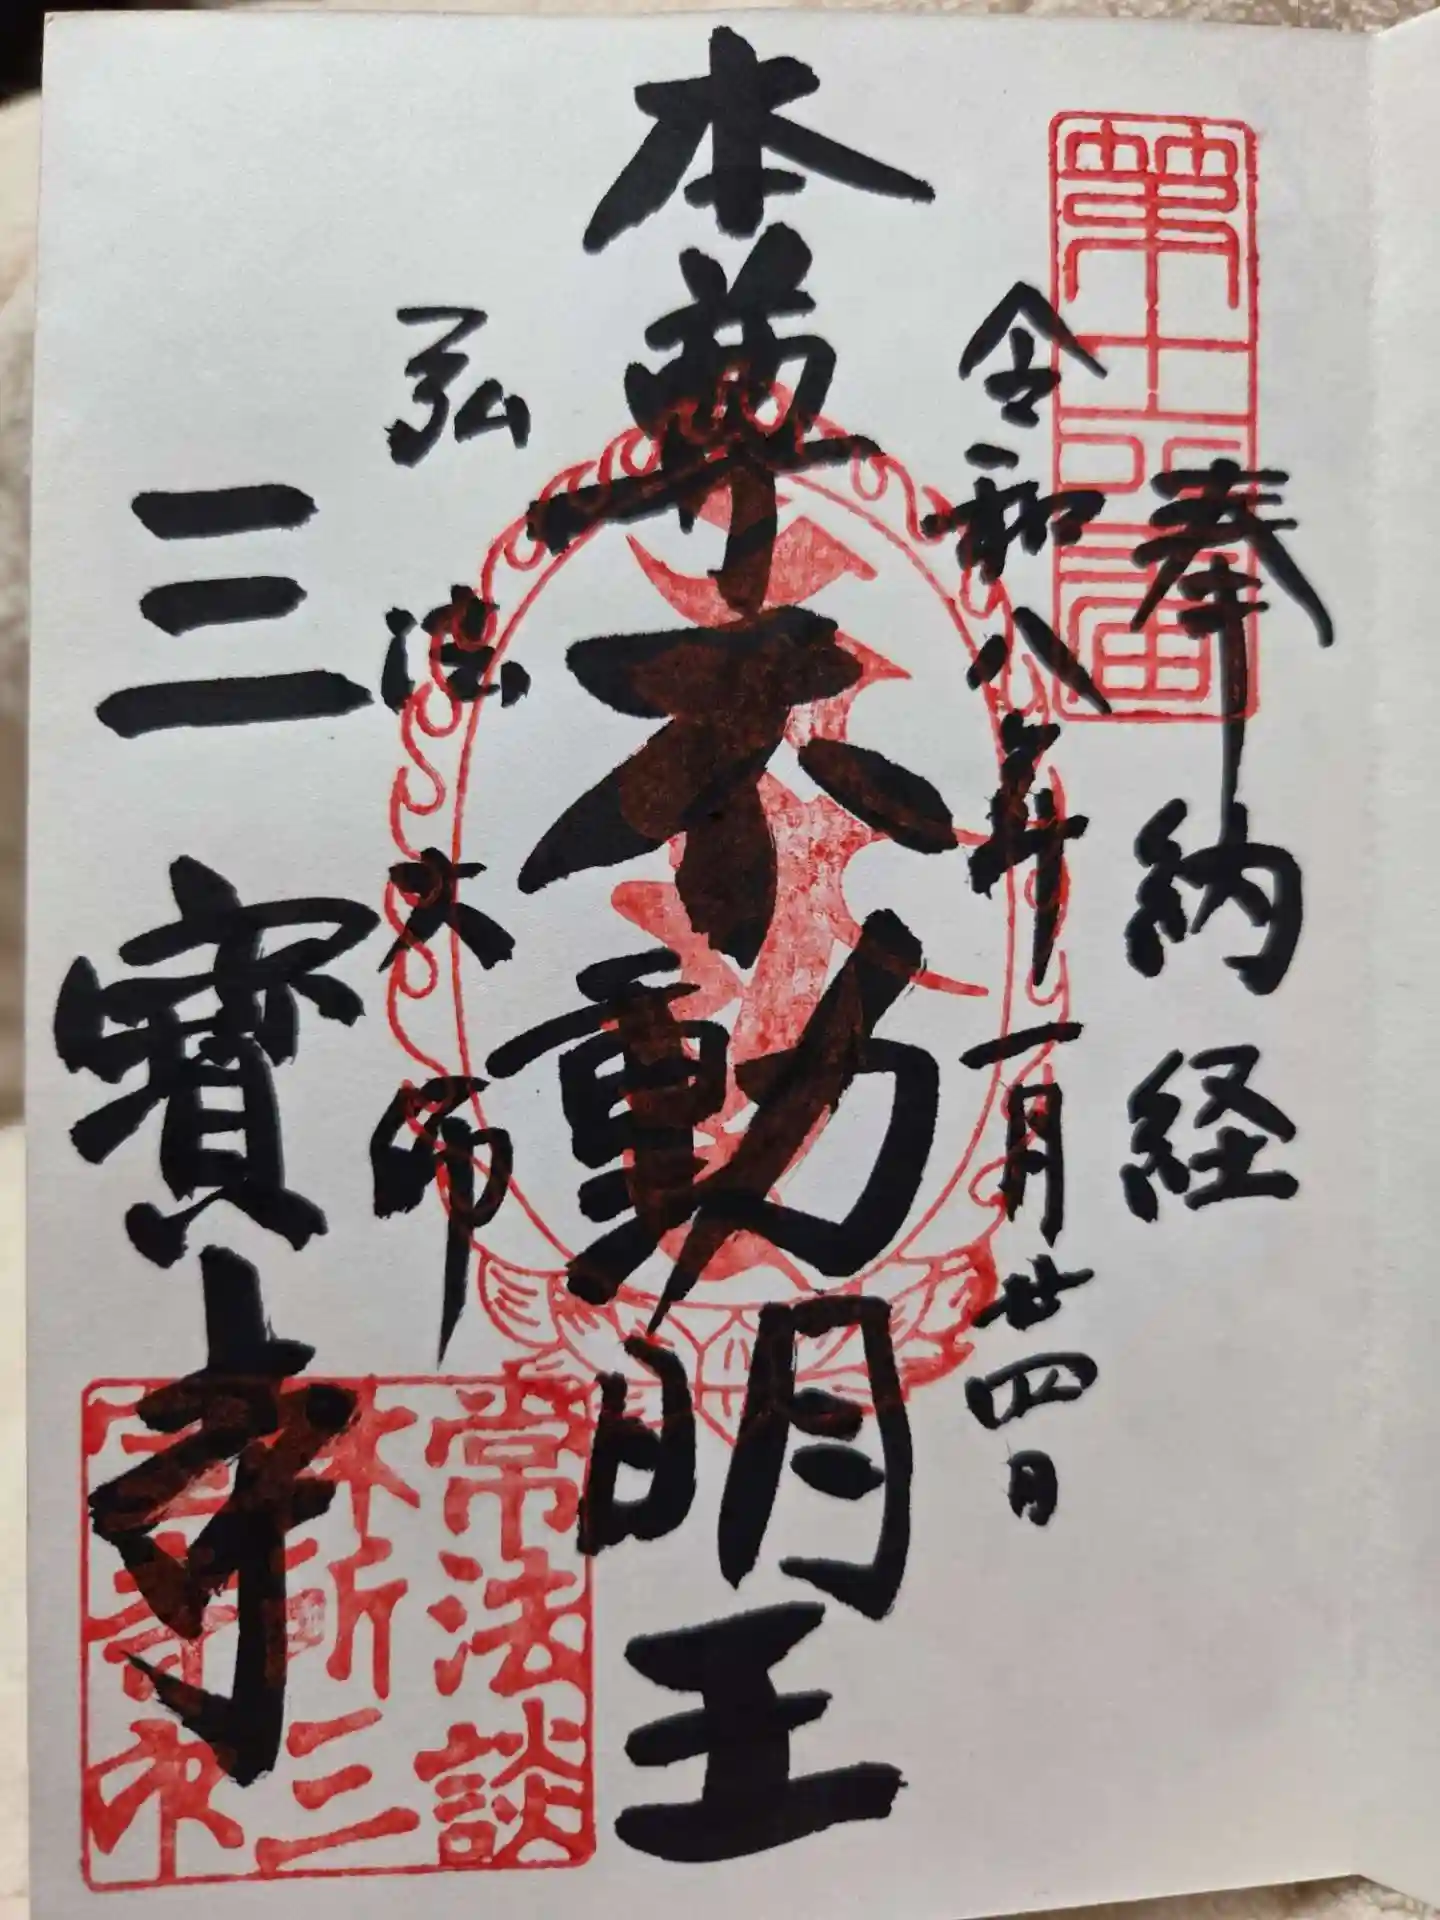 奉納経
令和八年一月廿四日
本尊不動明王
弘法大師
三寳寺
常法談
林所三